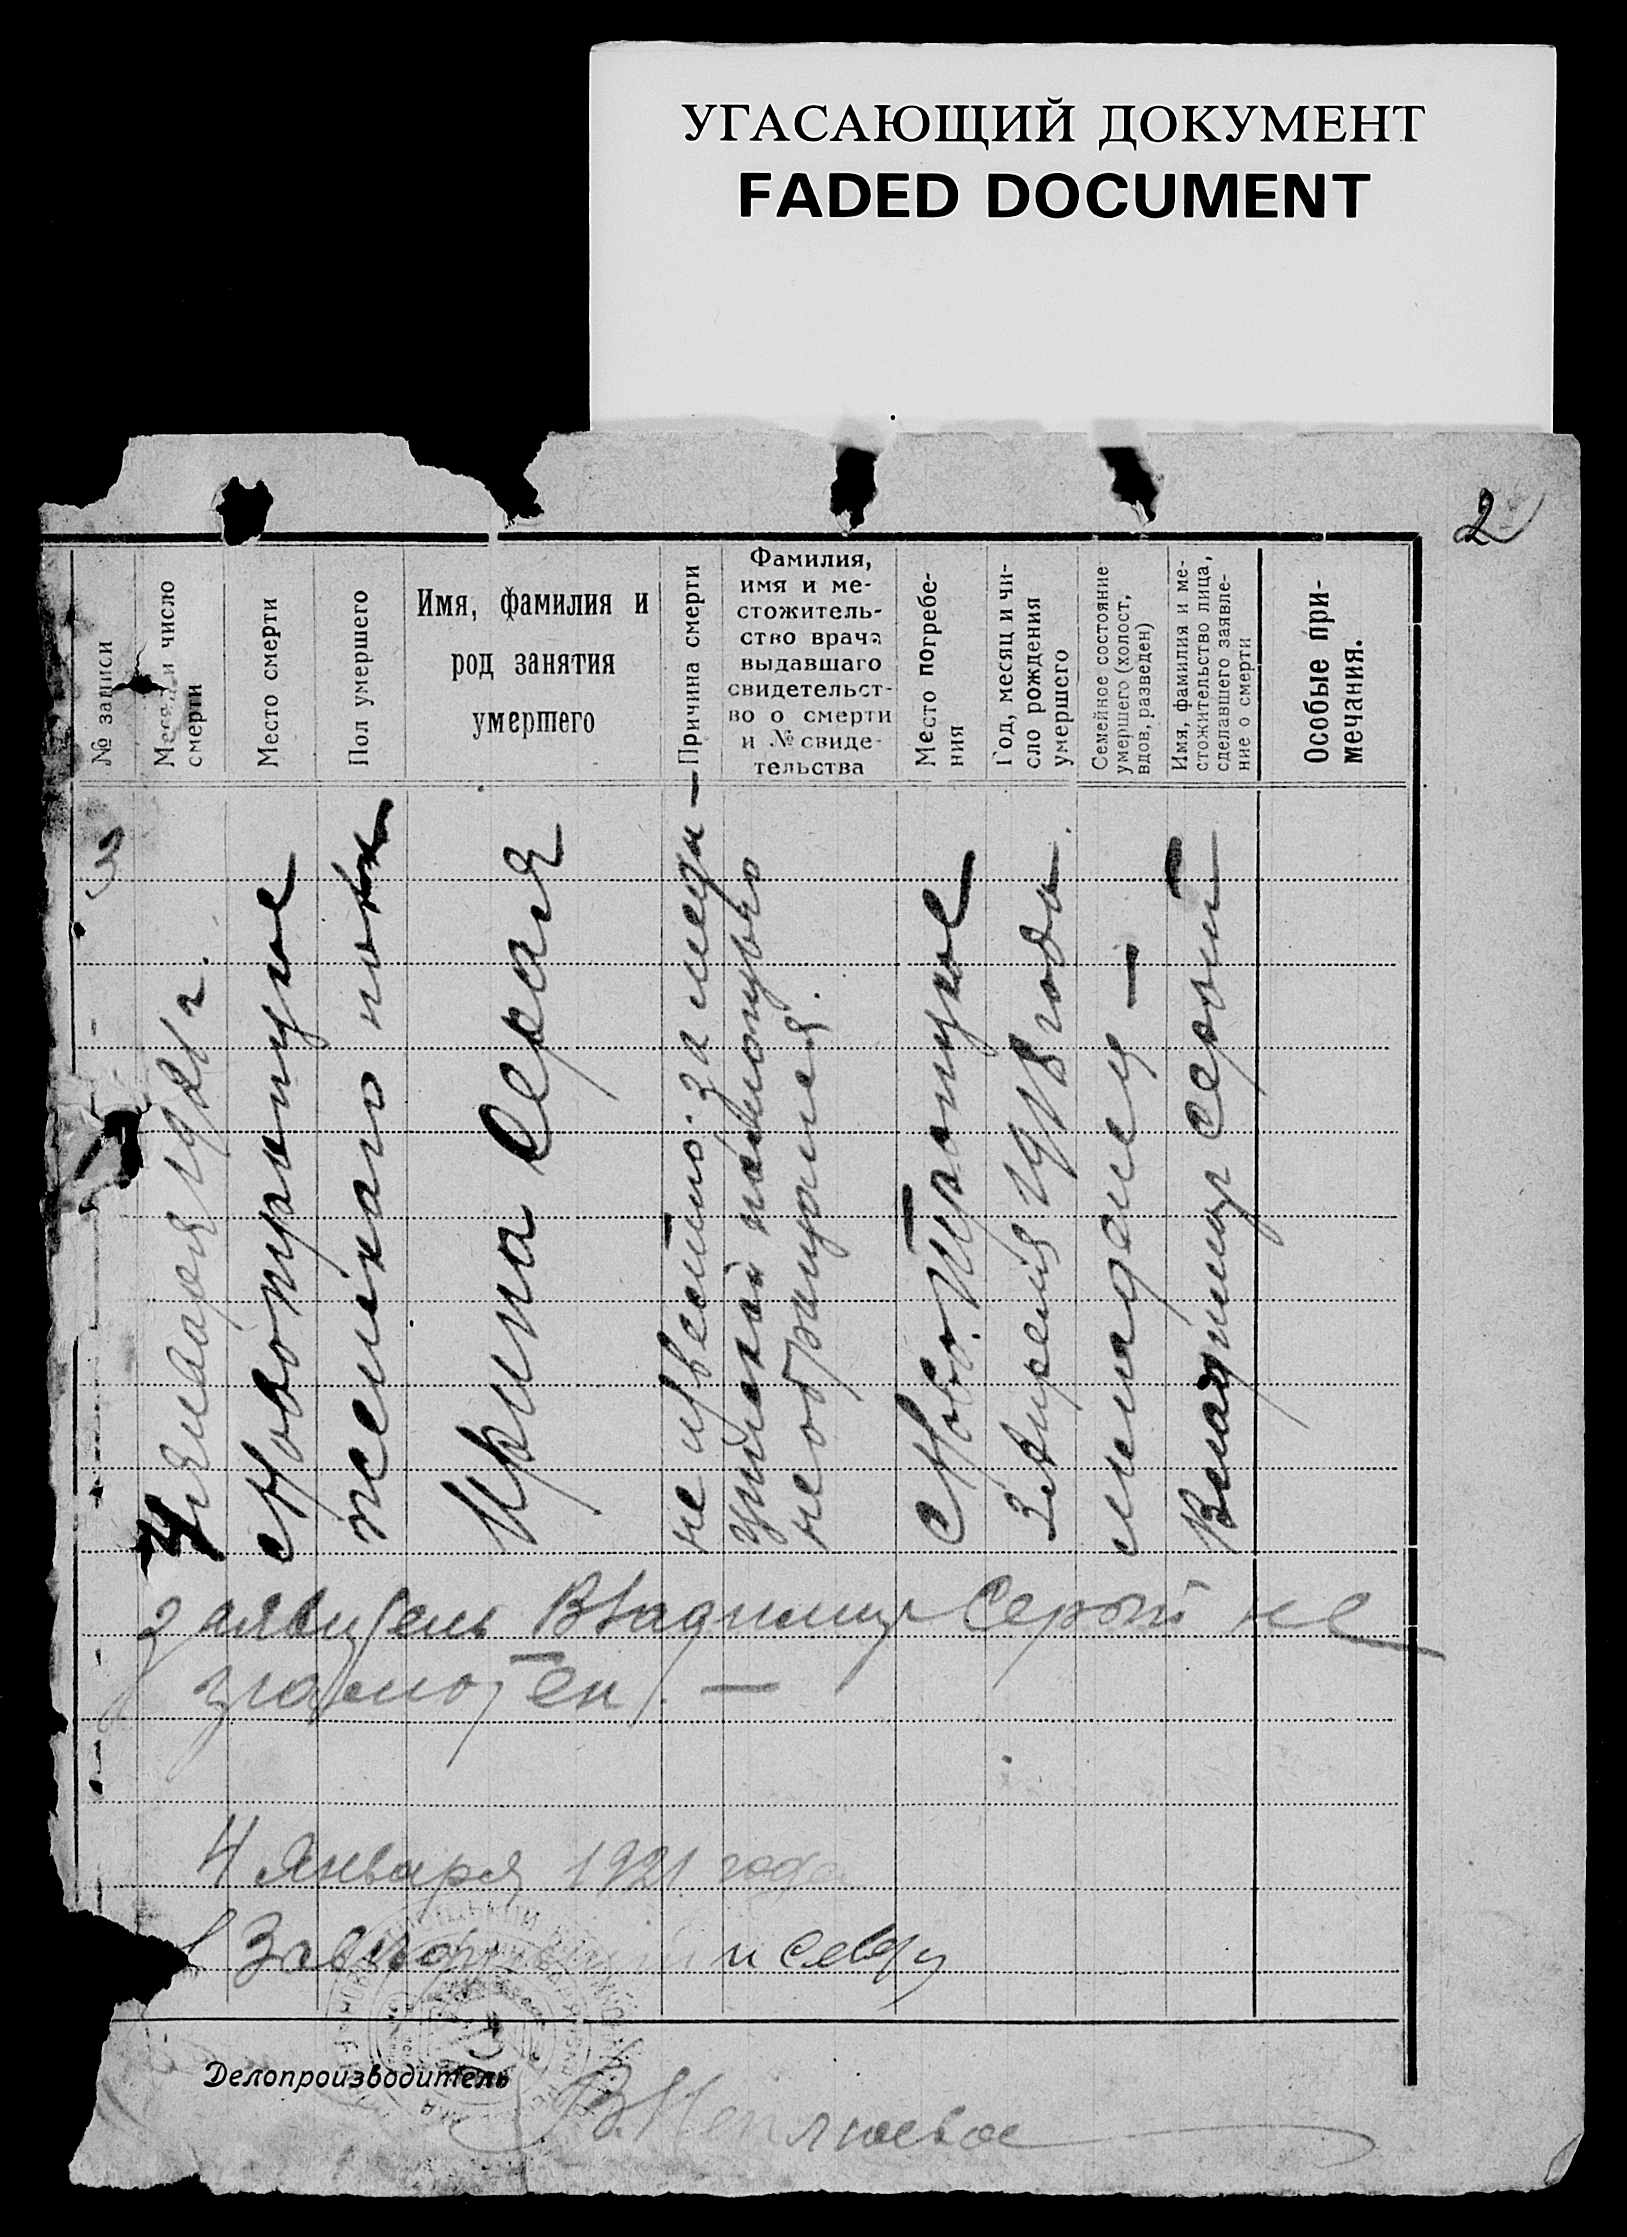 УГАСАЮЩИЙ ДОКУМЕНТ
FADED DOCUMENT
2
№ записи
Месяц и число
смерти
Место смерти
Пол умершего
Имя, фамилия и
род занятия
умершего
Причина смерти
Фамилия,
имя и ме-
стожитель-
ство врача
выдавшаго
свидетельст-
во о смерти
и № свиде-
тельства
Место погребе-
ния
Год, месяц и чи-
сло рождения
умершего
Семейное состояние
умершего (холост,
вдов, разведен)
Имя, фамилия и ме-
стожительство лица,
сделавшего заявле-
ние о смерти
Особые при-
мечания.
3
4 января 1921 г.
Новотроицкое
женскаго пола
Ирина Серая
не известно. за меди-
цинской помощью
не обращался.
Ново-Троицкое
3 апреля 1918 года.
младенец —
Владимир Серый
заявитель Владимир Серый не
грамотен. —
4 Января 1921 года
Зав.
Делопроизводитель